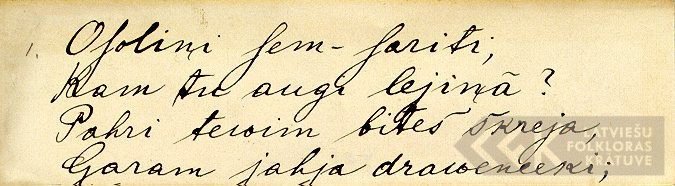 1. Oſolini ſem-ſariti,
Kam tu augi lejiņā?
Pahri tewim bites skreja,
Garam jahja draweneeki,
LATVIEŠU
FOLKLORAS
KRĀTUVE